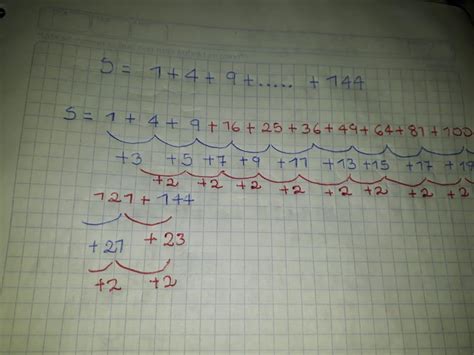 S = 1 + 4 + 9 + ..... + 144
S = 1 + 4 + 9 + 16 + 25 + 36 + 49 + 64 + 81 + 100
+3 +5 +7 +9 +11 +13 +15 +17 +19
+2 +2 +2 +2 +2 +2 +2 +2
121 + 144
+21 +23
+2 +2